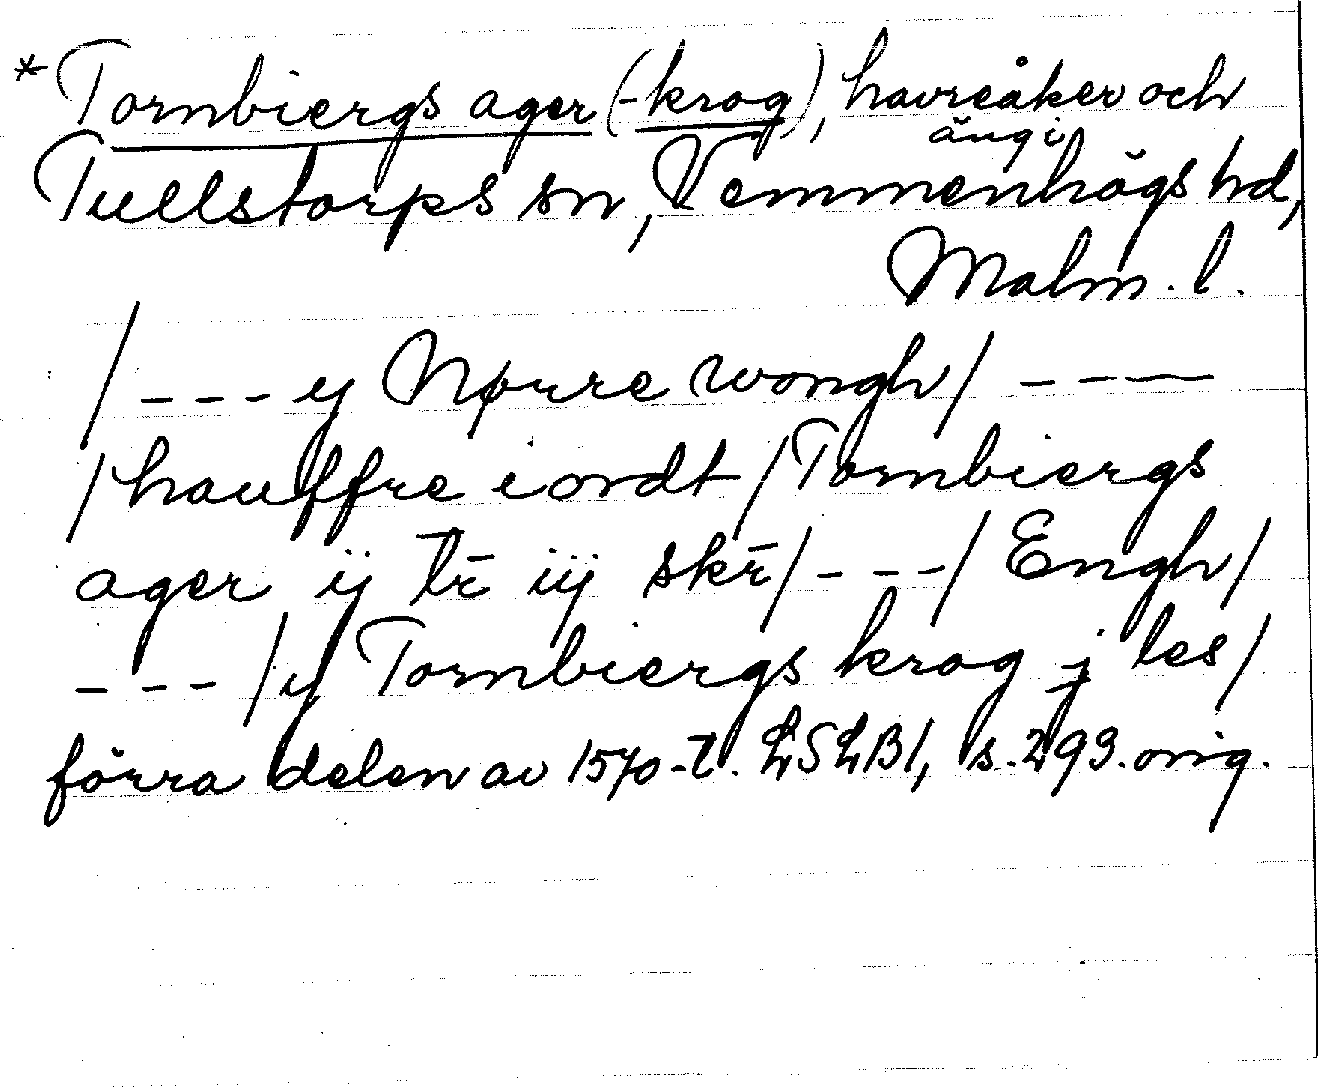 *Tornbiergs ager (-krog), havreåker och
äng i
Tullstorps sn, Vemmenhögs hd,
Malm. l.
/ - - - y Nørre wongh / - - -
/ hauffre iordt / Tornbiergs
ager ij tr̄ iij skr̄ / - - - / Engh /
- - - / y Tornbiergs krog j les /
förra delen av 1570-t. LSLB1, s. 293. orig.